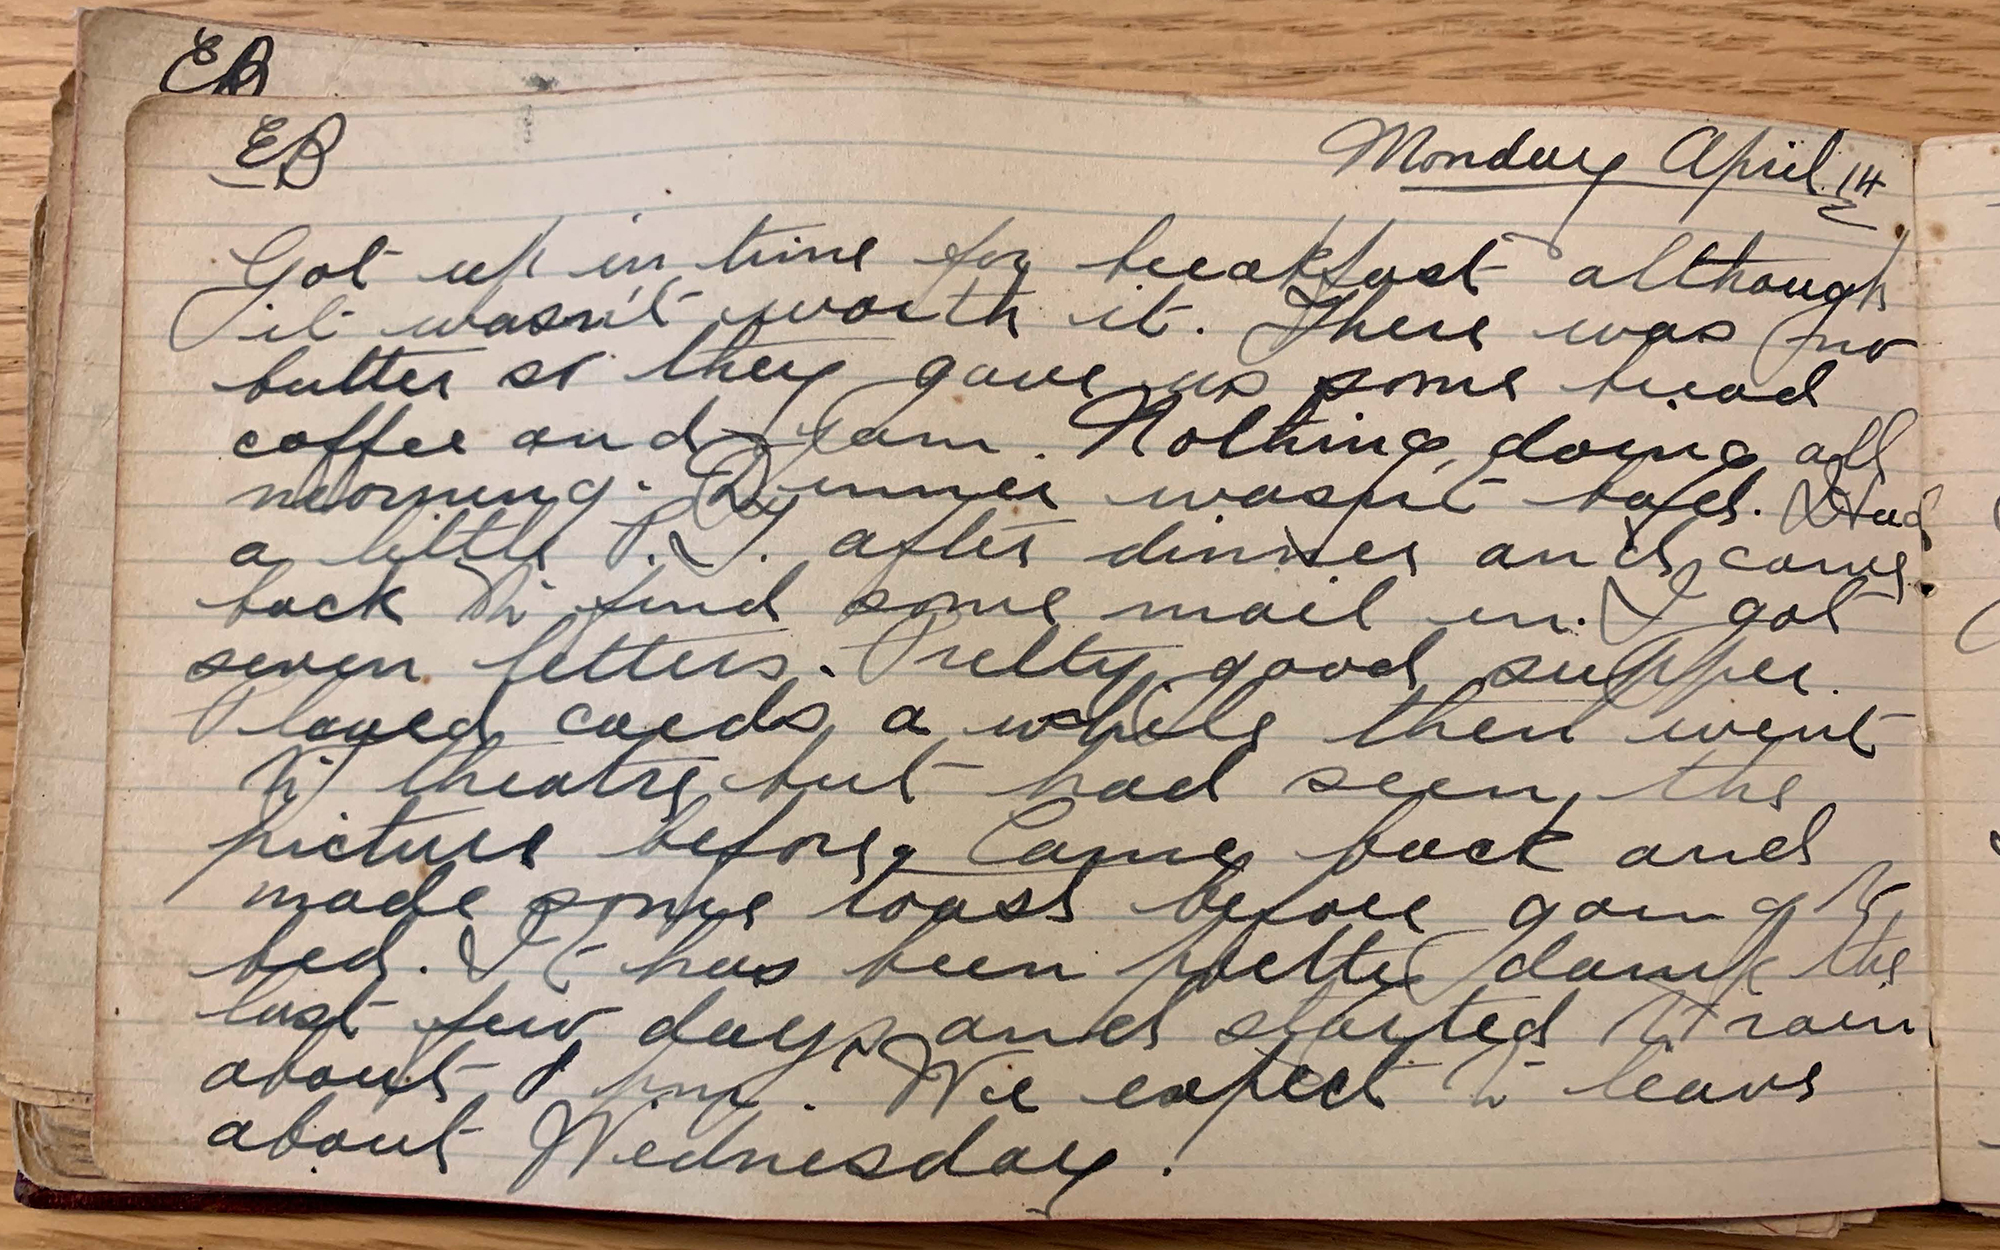 EB
EB
Monday April 14
Got up in time for breakfast although
it wasn't worth it. There was no
butter so they gave us some bread
coffee and jam. Nothing doing all
morning. Dinner wasn't bad. Had
a little P.T. after dinner and came
back to find some mail in. I got
seven letters. Pretty good supper.
Played cards a while then went
to theatre but had seen the
picture before. Came back and
made some toast before going to
bed. It has been pretty damp the
last few days and started to rain
about 1 pm. We expect to leave
about Wednesday.